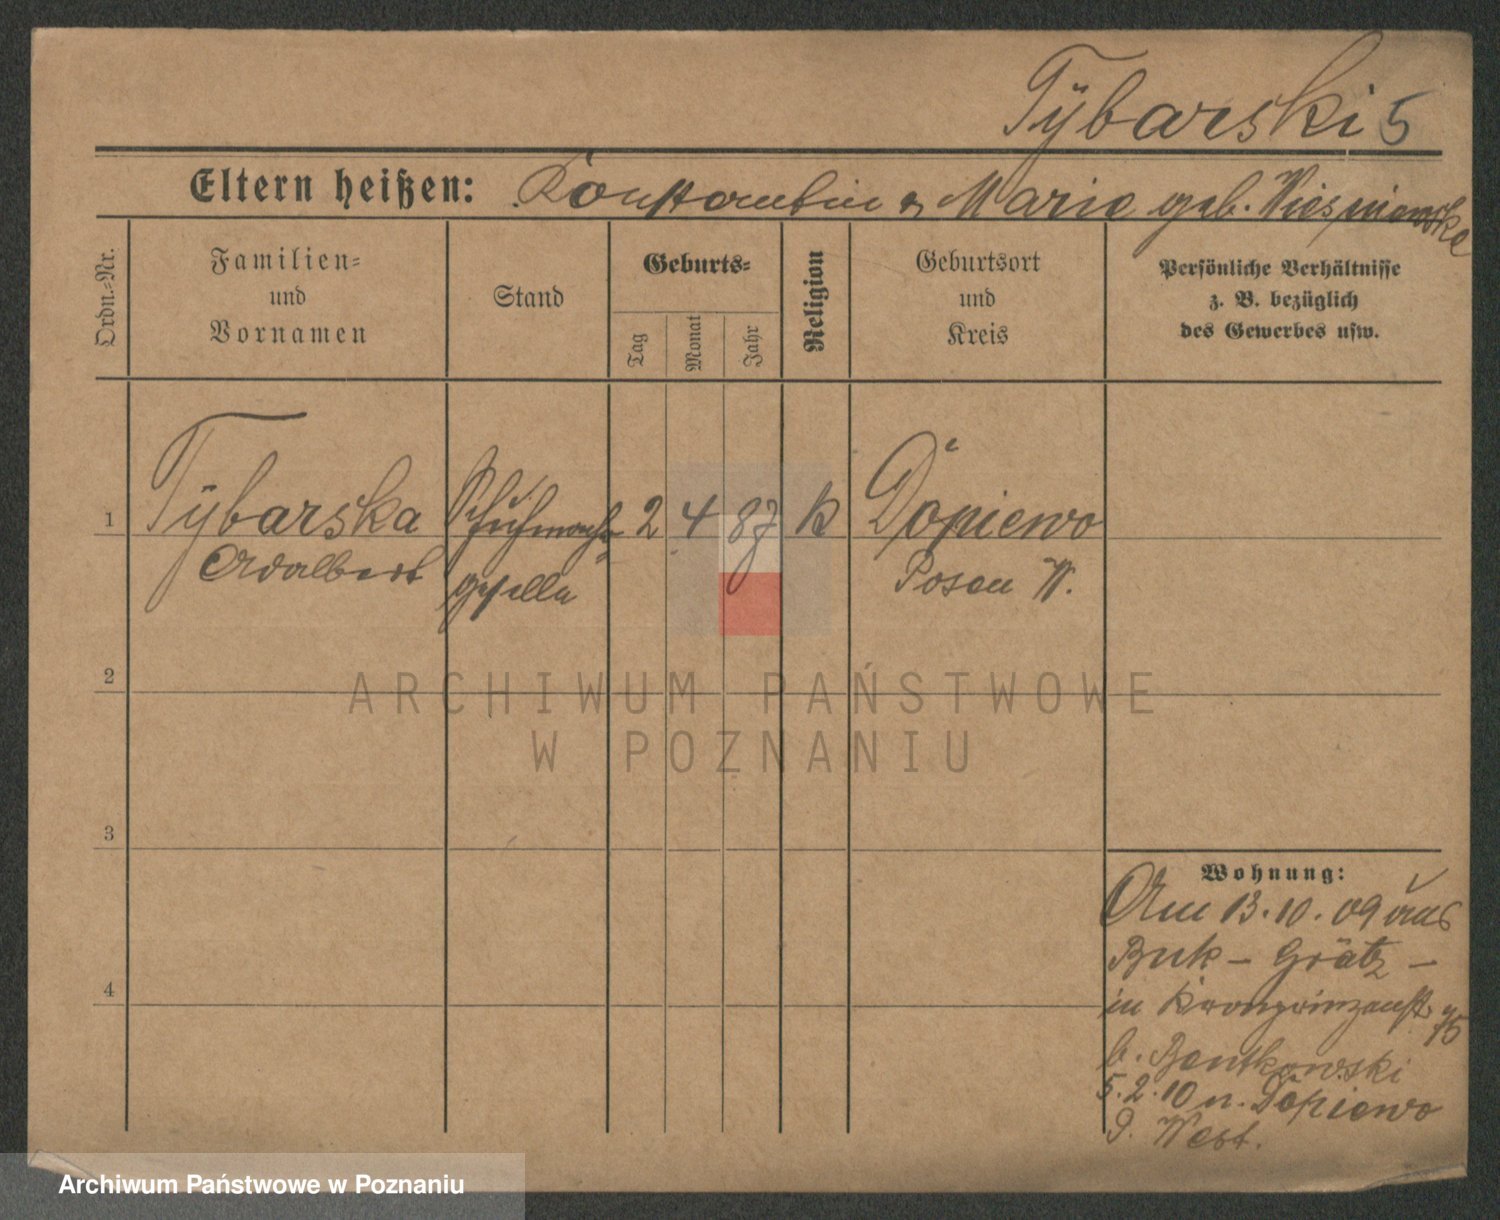 Tÿbarski 5
Eltern heißen: Konstantin & Marie geb. Wiesniewska
Ordn.-Nr.
Familien-
und
Vornamen
Stand
Geburts-
Tag
Monat
Jahr
Religion
Geburtsort
und
Kreis
Persönliche Verhältnisse
z. B. bezüglich
des Gewerbes usw.
1 Tÿbarska Schuhmacher 2 4 87 K Dopiewo
Adalbert geselle Posen W.
2
3
4
Wohnung:
Am 13.10.09 aus
Buk - Grätz -
in Kronprinzenstr. 75
b. Bentkowski
5.2.10 n. Dopiewo
P. West.
ARCHIWUM PAŃSTWOWE
W POZNANIU
Archiwum Państwowe w Poznaniu